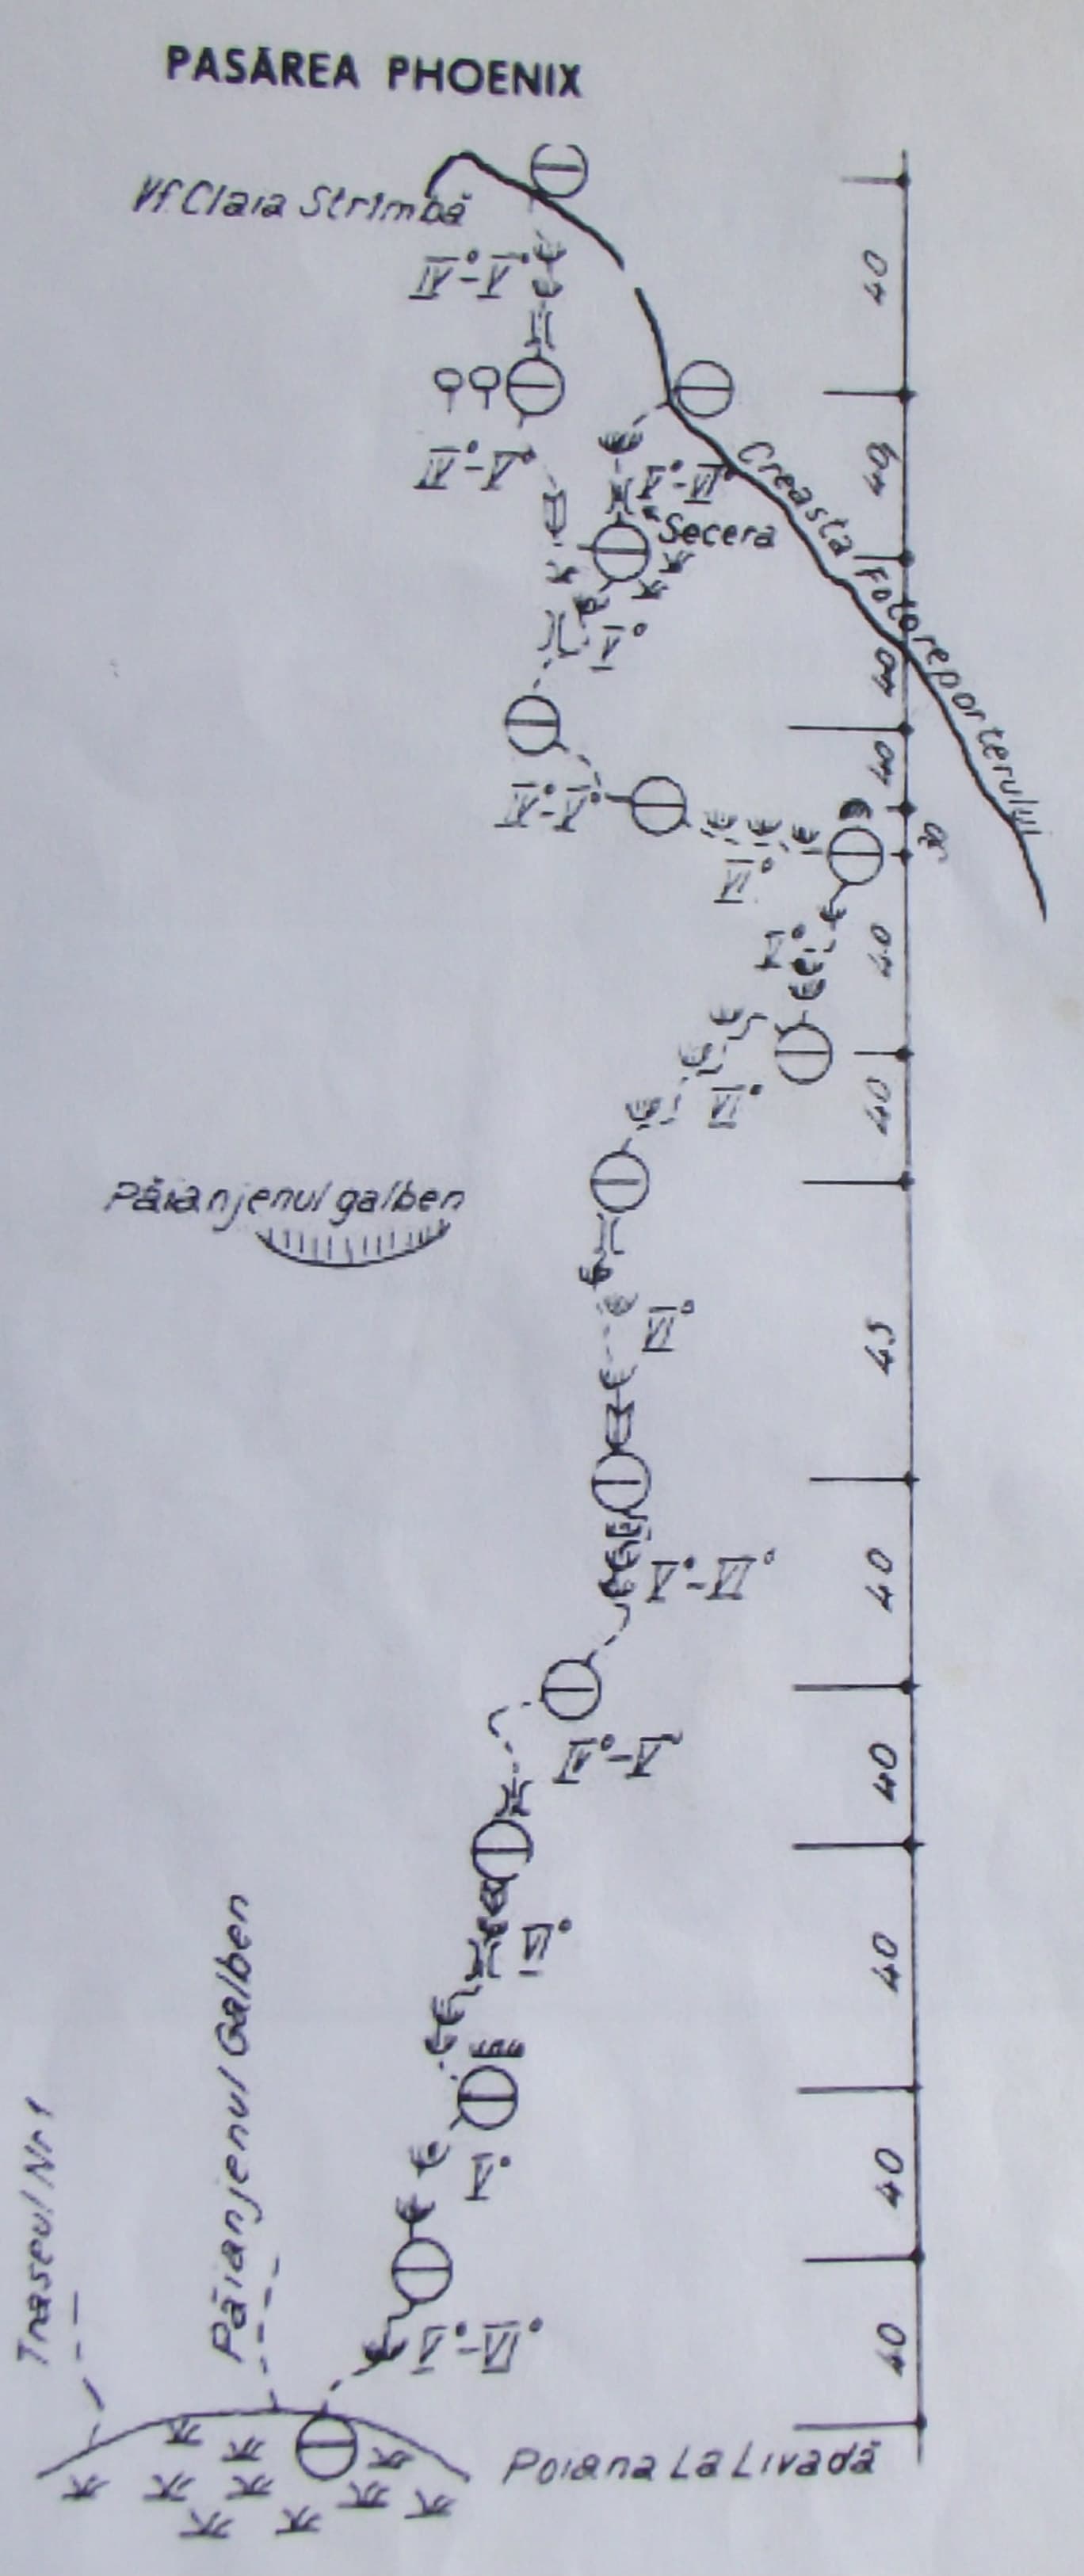 PASĂREA PHOENIX
Vf. Claia Strîmbă
IV°-V°
40
IV°-V°
V°-VI°
Secera
Creasta Fotoreporterului
40
V°
40
IV°-V°
40
VI°
V°
40
VI°
40
Păianjenul galben
VI°
45
V°-VI°
40
IV°-V°
40
VI°
40
Păianjenul Galben
Traseul Nr 1
V°
40
V°-VI°
40
Poiana La Livadă